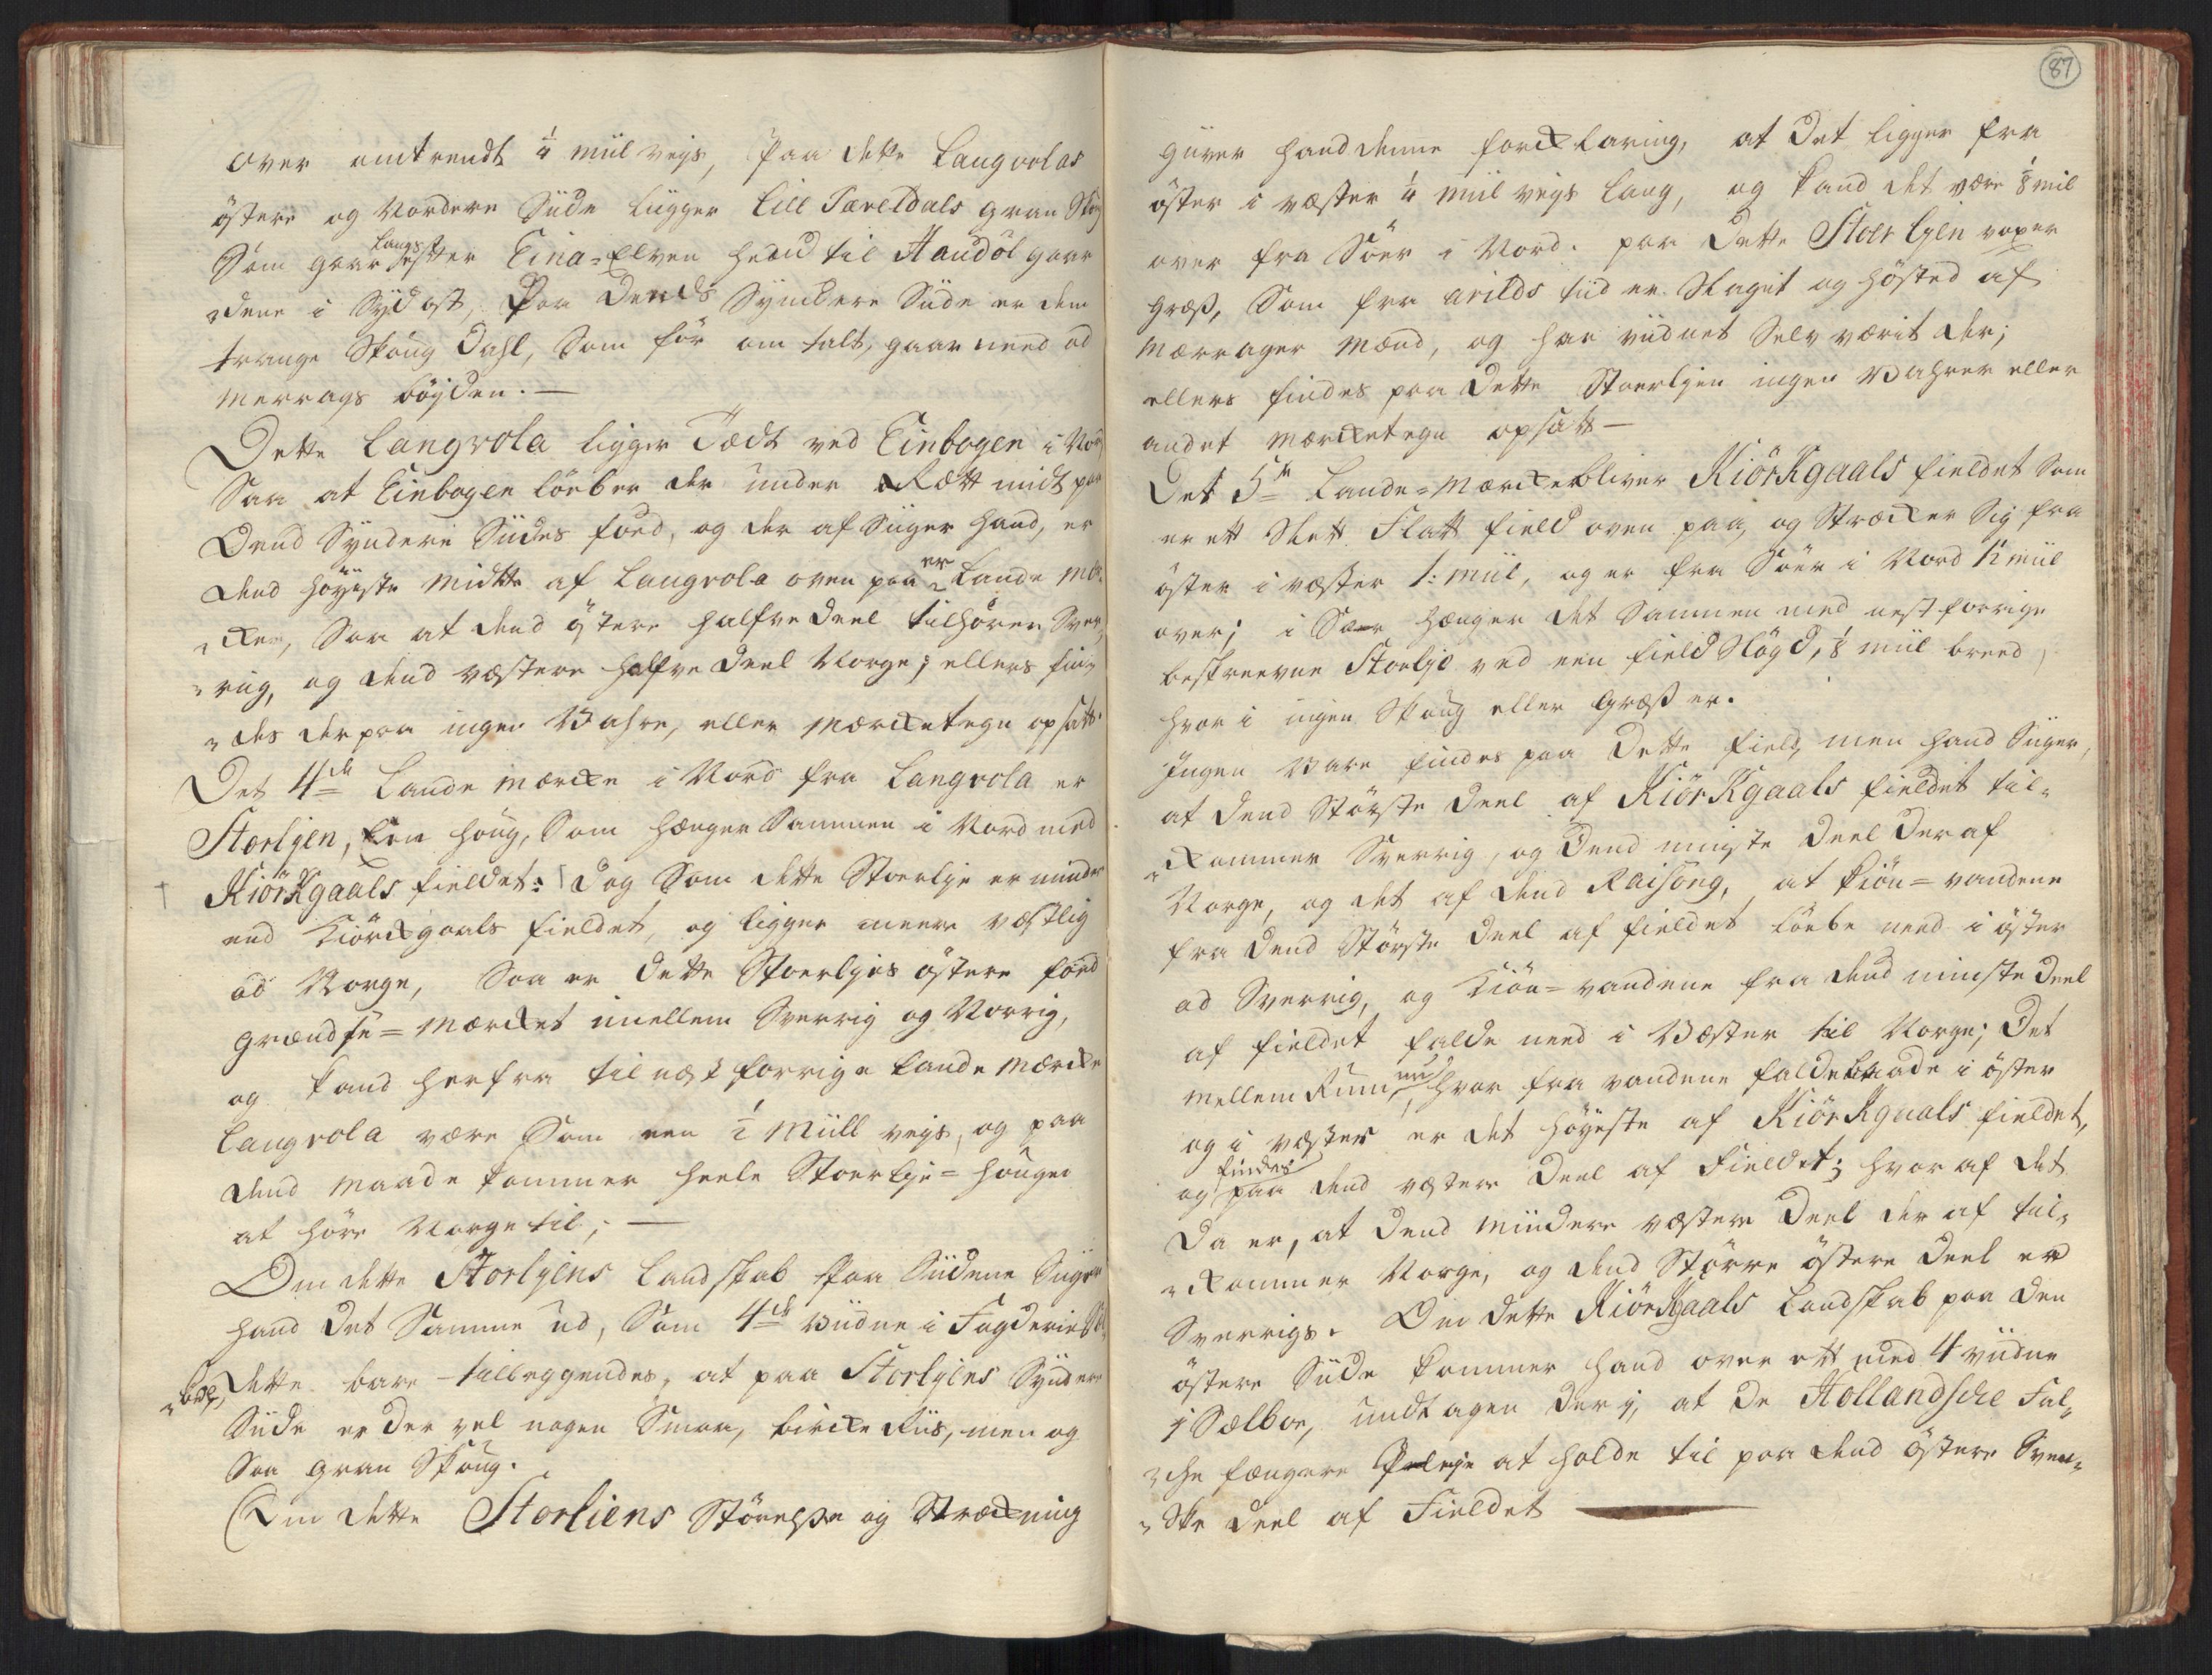 over omtrendt ¼ miil veÿs, Paa dette Langvolas
östere og Nordere Siide liigger Lill Tæveldals gran Skoug
Som gaar langst efter Eina-Elven heed til Handöl gaar
"dene i Sÿdost, Paa Dends Sÿndere Siide er den
trange Skoug Dahl, Som för om talt, gaar need ad
Merrags bÿgden. —
Dette Langvola ligger Tædt ved Einbogen i Nor
Saa at Einbogen löeber der under Rætt midt paa
Dend Sÿndere Siides foed, og der af Siiger hand, er
dend höÿeste Midtte af Langvola oven paa er Lande Mær
"cker, Saa at dend östere halfve deel tilhörer Sver
"rig, og dend væstere halfve deel Norge; ellers fin
"des derpaa ingen Vahre, eller Mærcketegn opsatt.
Det 4de Lande Mærcke i Nord fra Langvola er
Storlÿen, Een Houg, Som hænger Sammen i Nord med
KiörKgaals fieldet: Dog Som dette Stoerlÿe er minder
end Kiörckgaals fieldet, og ligger meere væstlig
ad Norge, Saa er dette Stoerlÿes östere foed
grændse-Mærcket imellem Sverrig og Norrig,
og kand herfra til næst forrige Lande Mærcke
Langvola være Som een ½ Miill veÿs, og paa
dend Maade kommer heele Stoerlÿe-Hougen
at höre Norge til; —
Om dette Storlÿens Landskab paa Siidene Siiger
hand det Samme ud, Som 4de Viidne i Fogderiet Sæl
"boe, dette bare tilleggendes, at paa Storlÿens Sÿndere
Siide er der vel nogen Smaa, bircke Riis, men og
Saa gran Skoug.
Om dette Storliens Störelsse og Strækning
87
giiver hand denne forcklaring, at det ligger fra
öster i væster ¼ miil veÿs lang, og kand det være ⅛ mil
over fra Söer i Nord. paa dette Stoerlÿen voxer
græs, Som fra arilds tiid er Slagit og Hösted af
Mærrager Mænd, og har viidnet Selv værit der;
ellers findes paa dette Stoerlÿen ingen Vahrer eller
andet Mærcketegn opsatt —
Det 5te Lande-Mærcke bliver KiörKgaals fieldet Som
er ett Slett Flatt field oven paa, og Strecker Sig fra
öster i væster 1: miil, og er fra Söer i Nord ½ miil
over; i Söer hænger det Sammen med nest forrige
beskreevne Storlÿe ved een field Högd, ⅛ miil breed,
hvor i ingen Skoug eller græs er.
Ingen Vare findes paa dette field, men hand Siiger,
at dend Störste deel af KiörKgaals fieldet til-
"kommer Sverrig, og dend mindste deel deraf
Norge, og det af dend Raisong, at Kiön-vandene
fra dend Störste deel af fieldet löebe need i öster
ad Sverrig, og Kiön-vandene fra dend mindste deel
af fieldet falde need i Væster til Norge; Det
mellem Rum, hvor fra vandene falde baade i öster
og i væster er det höÿeste af KiörKgaals fieldet,
og findes paa dend væstere deel af Fieldet; hvoraf det
da er, at dend mindere væstere deel der af til-
"kommer Norge, og dend Större östere deel er
Sverrigs. Om dette KiörKgaals Landskab paa den
östere Siide kommer hand over ett med 4 viidne
i Sælboe, undtagen der i, at de Hollandsche Fal-
"che fængere Pleÿe at holde til paa dend östere Sven-
"ske deel af Fieldet —